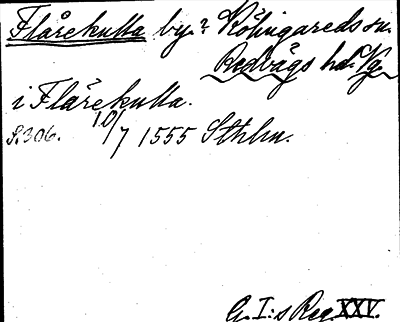 Flårekulla by.? Kölingareds sn.
Redvägs hd. Vg.
i Flårekulla.
S.306. 10/7 1555 Sthlm.
G. I:s Reg XXV.